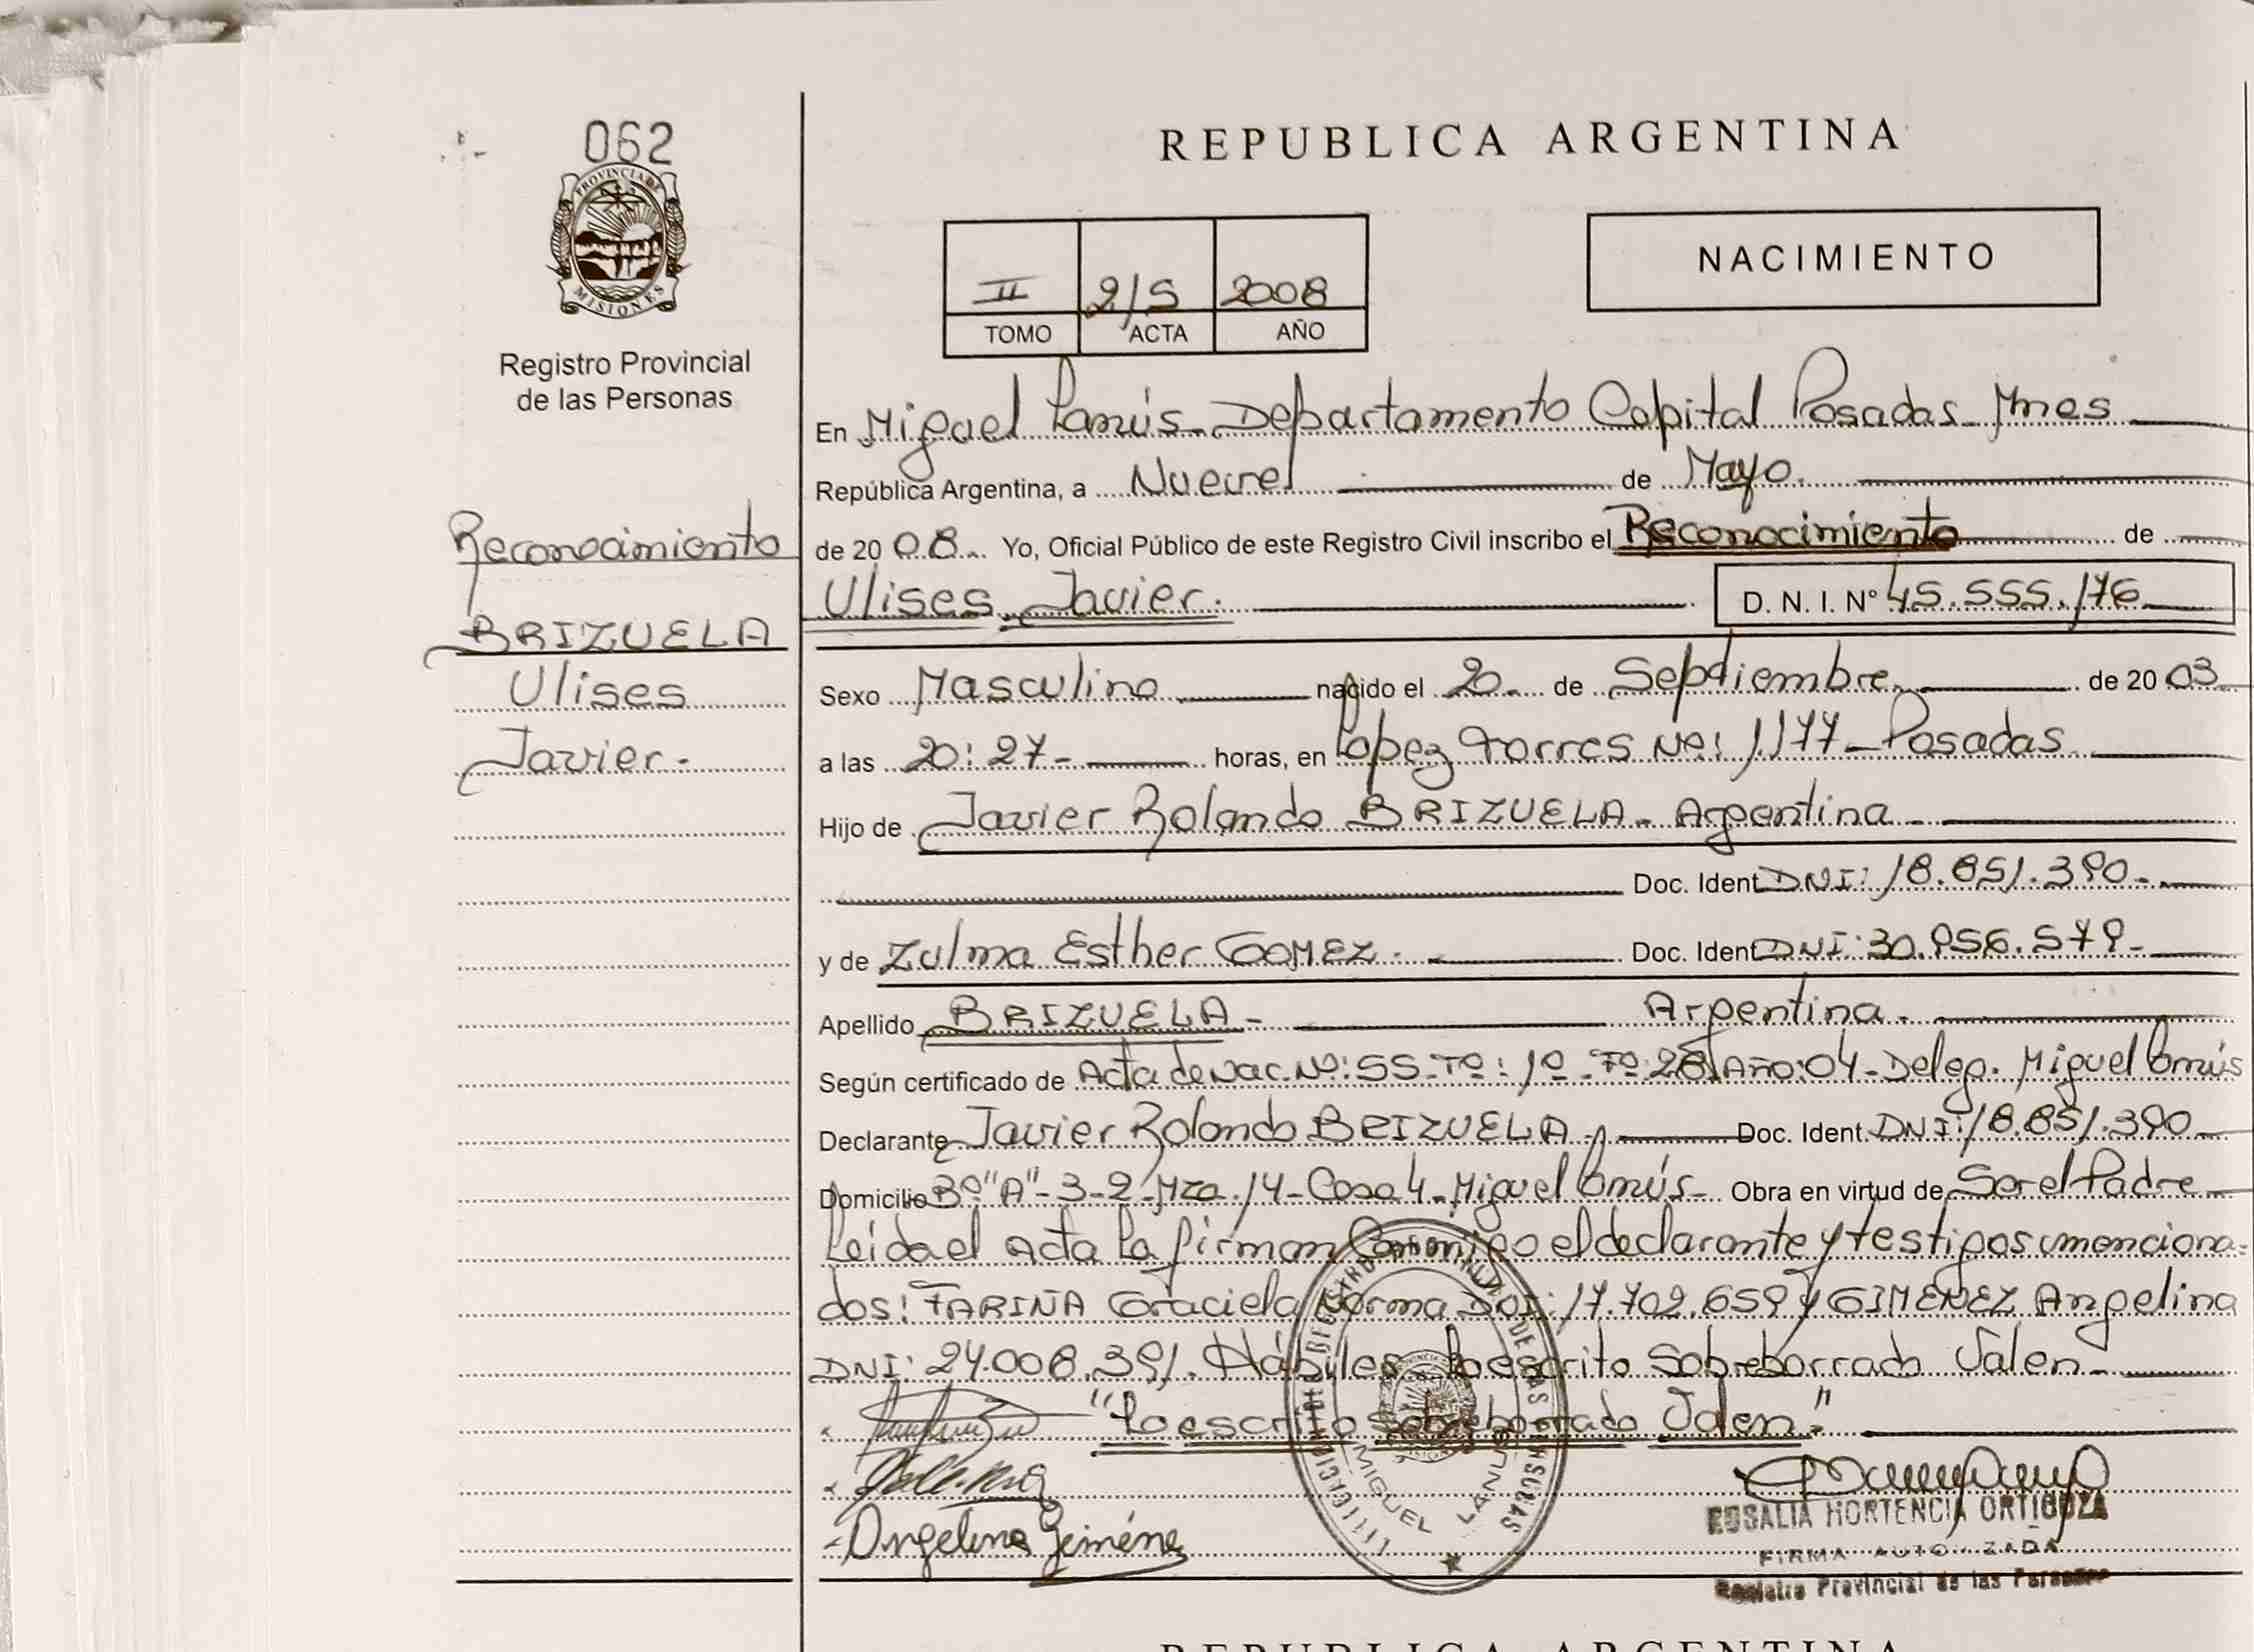 062
PROVINCIA DE
MISIONES
Registro Provincial
de las Personas
Reconocimiento
BRIZUELA
Ulises
Javier.-
REPUBLICA ARGENTINA
NACIMIENTO
II 215 2008
TOMO ACTA AÑO
En Miguel Lanús - Departamento Capital Posadas - Mnes
República Argentina, a Nueve de Mayo.
de 2008. Yo, Oficial Público de este Registro Civil inscribo el Reconocimiento de
Ulises Javier. D. N. I. Nº 45.555.176
Sexo Masculino nacido el 20 de Septiembre de 2003
a las 20:27- horas, en Lopez Torres Nº: 1.177 - Posadas
Hijo de Javier Rolando BRIZUELA - Argentina
Doc. Ident DNI: 18.851.390.-
y de Zulma Esther GOMEZ.- Doc. Ident DNI: 30.956.579-
Apellido BRIZUELA - Argentina.
Según certificado de Acta de Nac. Nº: 55 - Tº: 1º - Fº: 28 Año: 04 - Deleg. Miguel Lanús
Declarante Javier Rolando BRIZUELA.- Doc. Ident. DNI: 18.851.390
Domicilio Bº "A"-3-2-Mza.14-Casa 4-Miguel Lanús- Obra en virtud de Ser el Padre
Leida el acta la firman Conmigo el declarante y testigos menciona-
dos: FARIÑA Graciela Norma DNI: 17.702.659 y GIMENEZ Angelina
DNI: 24.008.391. Hábiles - Lo escrito Sobreborrado Valen-
"Lo escrito Sobreborrado Valen."
Angelina Giménez
MIGUEL LANUS
ROSALIA HORTENCIA ORTIGOZA
FIRMA AUTORIZADA
Registro Provincial de las Personas
REPUBLICA ARGENTINA